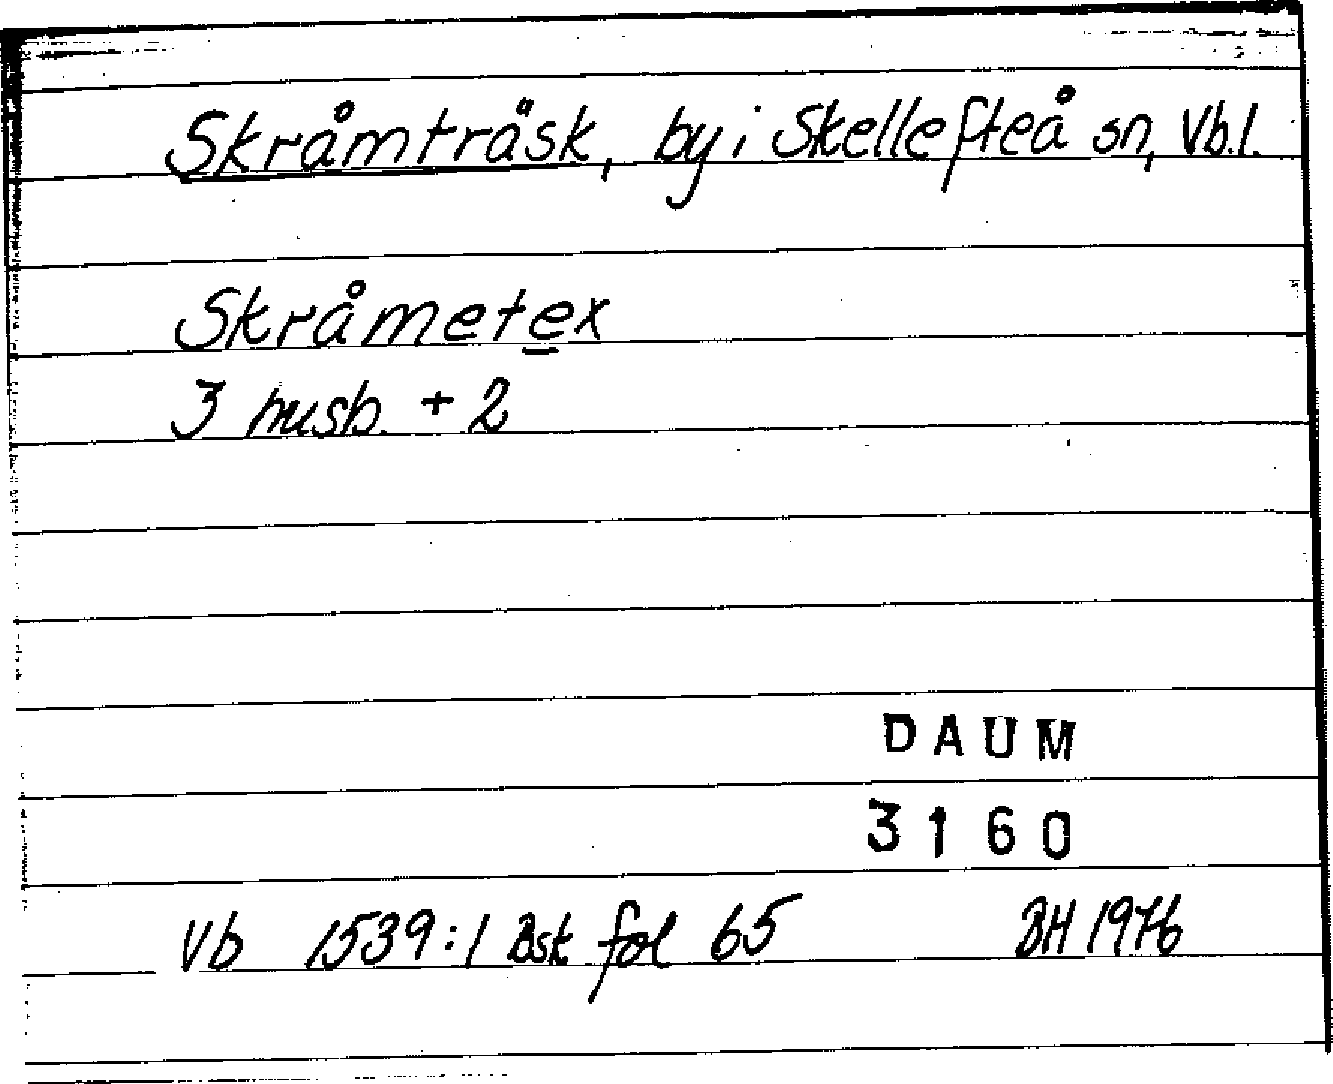 Skråmträsk, by i Skellefteå sn, Vb.l.
Skråmetex
3 husb. + 2
DAUM
3160
Vb 1539:1 Bsk fol 65 BH 1976